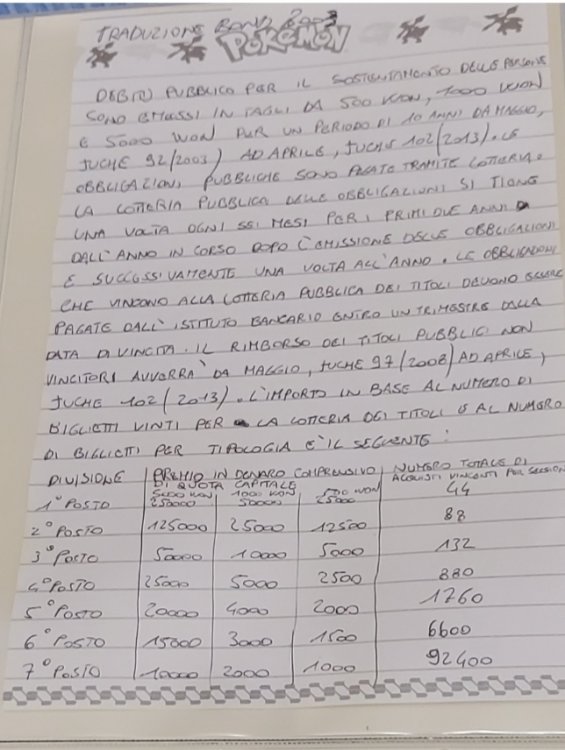 TRADUZIONE BOND 2003
POKÉMON
DEBITO PUBBLICO PER IL SOSTENTAMENTO DELLE PERSONE
SONO EMESSI IN TAGLI DA 500 WON, 1000 WON
E 5000 WON PUR UN PERIODO DI 10 ANNI DA MAGGIO,
JUCHE 92/2003) AD APRILE, JUCHE 102 (2013). LE
OBBLIGAZIONI PUBBLICHE SONO PAGATE TRAMITE LOTTERIA.
LA LOTTERIA PUBBLICA DELLE OBBLIGAZIONI SI TIENE
UNA VOLTA OGNI SEI MESI PER I PRIMI DUE ANNI
DALL'ANNO IN CORSO DOPO L'EMISSIONE DELLE OBBLIGAZIONI
E SUCCESSIVAMENTE UNA VOLTA ALL'ANNO. LE OBBLIGAZIONI
CHE VINCONO ALLA LOTTERIA PUBBLICA DEI TITOLI DEVONO ESSERE
PAGATE DALL'ISTITUTO BANCARIO ENTRO UN TRIMESTRE DALLA
DATA DI VINCITA. IL RIMBORSO DEI TITOLI PUBBLICI NON
VINCITORI AVVERRA' DA MAGGIO, JUCHE 97/(2008) AD APRILE,
JUCHE 102 (2013). L'IMPORTO IN BASE AL NUMERO DI
BIGLIETTI VINTI PER LA LOTTERIA DEI TITOLI E AL NUMERO
DI BIGLIETTI PER TIPOLOGIA E' IL SEGUENTE:
DIVISIONE PREMIO IN DENARO COMPRENSIVO DI QUOTA CAPITALE NUMERO TOTALE DI ACQUISTI VINCENTI PER SESSION
5000 WON 1000 WON 500 WON
1° POSTO 250000 50000 25000 44
2° POSTO 125000 25000 12500 88
3° POSTO 50000 10000 5000 132
4° POSTO 25000 5000 2500 880
5° POSTO 20000 4000 2000 1760
6° POSTO 15000 3000 1500 6600
7° POSTO 10000 2000 1000 92400